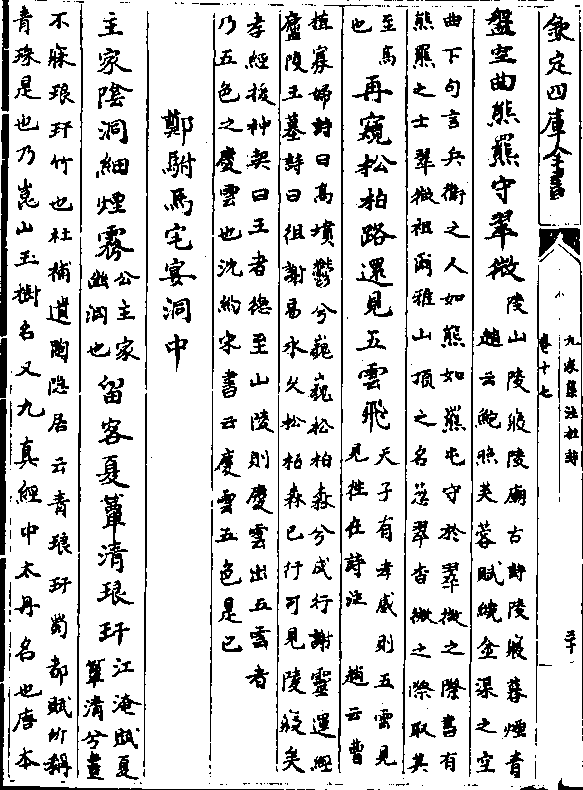 欽定四庫全書
九家集注杜詩
卷十七
盤空曲熊羆守翠微
陵山陵寢陵廟古詩陵寢暮煙青
趙云鮑照芙蓉賦繞金渠之空
曲下句言兵衛之人如熊如羆屯守於翠微之際書有
熊羆之士翠微祖爾雅山頂之名蓋翠杳微之際取其
至高
也
再窺松柏路還見五雲飛
天子有孝感則五雲見
見徃在詩注 趙云曹
植寡婦詩曰高墳鬱兮巍巍松柏森兮成行謝靈運經
廬陵王墓詩曰徂謝易永久松柏森已行可見陵寢矣
孝經援神契曰王者德至山陵則慶雲出五雲者
乃五色之慶雲也沈約宋書云慶雲五色是已
鄭駙馬宅宴洞中
主家陰洞細煙霧
公主家
幽洞也
留客夏簟清琅玕
江淹賦夏
簟清兮晝
不寐琅玕竹也杜補遺陶隱居云青琅玕蜀都賦所稱
青珠是也乃崑山玉樹名又九真經中太丹名也唐本